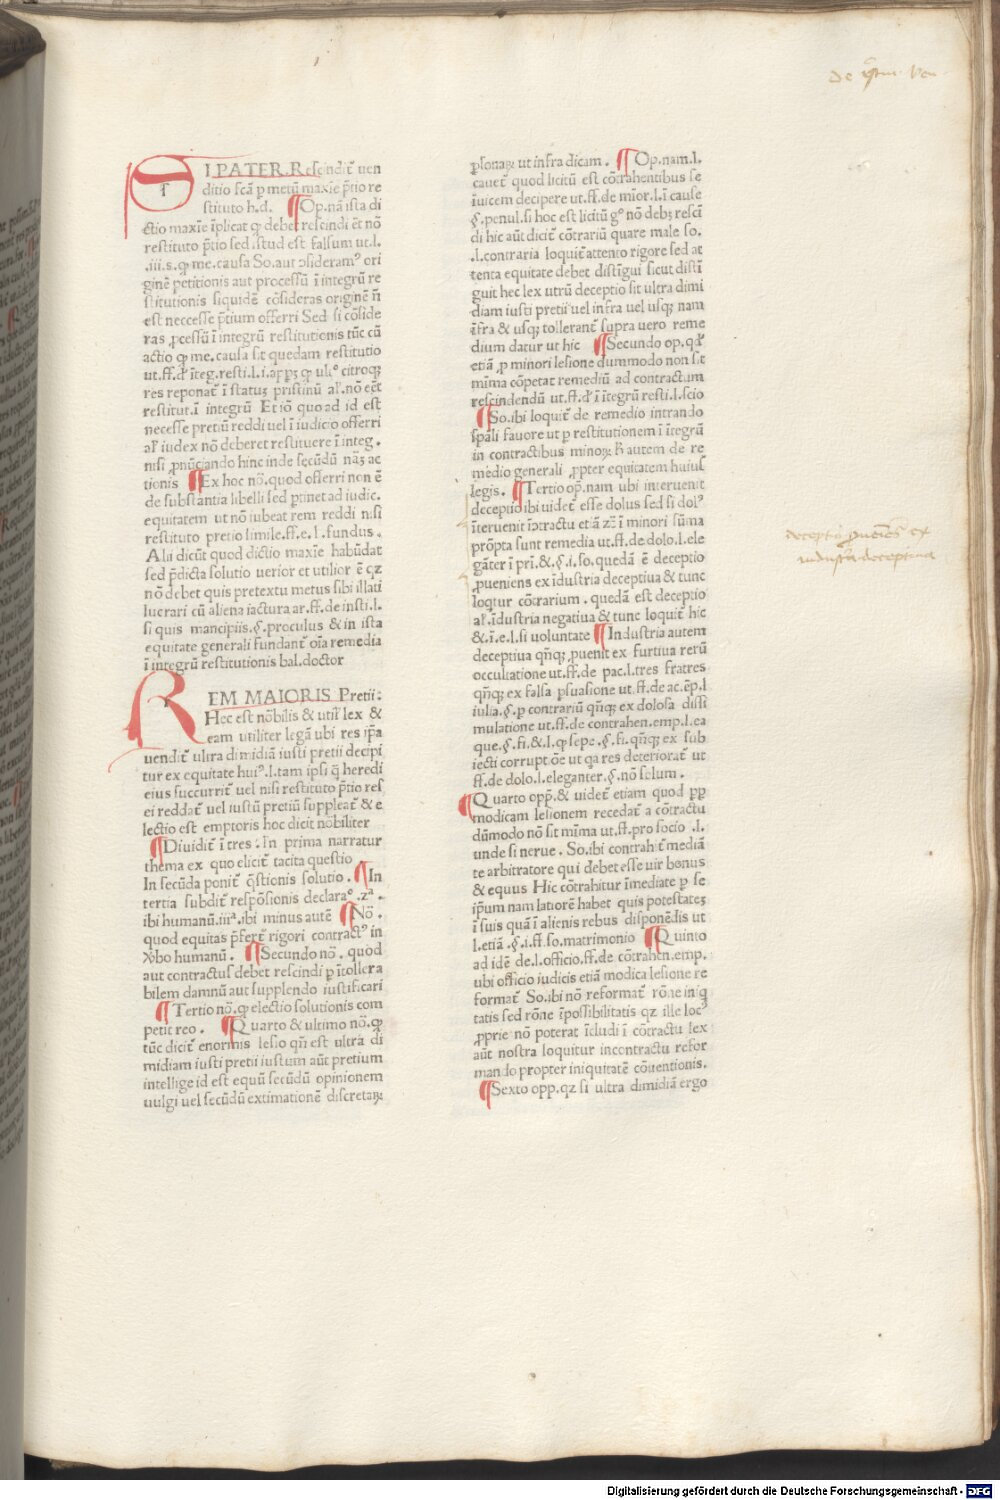 De r̃ıu. Ven
SI PATER. Rescindit̃ uen
ditio fcã p metũ maxíe p̃tio re
stituto h.d. ¶ Op. nã ista di
ctio maxíe íplicat ꝙ debet rescindi et̃ nõ
restituto p̃tio sed istud est falsum ut.l.
.iii.s. ꝙ me. causa So. aut ɔsideramꝰ ori
ginẽ petitionis aut processũ ĩ integrũ re
stitutionis siquidẽ cõsideras originẽ ñ
est neccesse p̃tium offerri Sed si cõside
ras ꝓcessũ ĩ integrũ restitutionis tũc cũ
actio ꝙ me. causa sit quedam restitutio
ut.ff.d̃ ĩteg.resti.l.i.
res reponat̃ ĩ statuꝫ pristinũ al̃. nõ eẽt
restitut.ĩ integrũ Et iõ quo ad id est
necesse pretiũ reddi uel ĩ iudicio offerri
al̃ iudex nõ deberet restituere ĩ integ.
nisi ꝓnũciando hinc inde secũdũ nãꝫ ac
tionis ¶ Ex hoc nõ. quod offerri non ẽ
de substantia libelli sed ptinet ad iudic.
equitatem ut nõ iubeat rem reddi nisi
restituto pretio simile.ff.e.l.fundus.
Alii dicũt quod dictio maxíe habũdat
sed p̃dicta solutio uerior et utilior ẽ qꝫ
nõ debet quis pretextu metus sibi illati
lucrari cũ aliena iactura ar.ff.de insti.l.
si quis mancipiis.§.proculus & in ista
equitate generali fundant̃ oĩa remedia
ĩ integrũ restitutionis bal.doctor
REM MAIORIS Pretii:
Hec est nõbilis & util̃ lex &
eam utiliter legã ubi res ip̃a
uendit̃ ultra dimidiã iusti pretii decipi
tur ex equitate huiꝰ.l.tam ipsi q̃ heredi
eius succurrit̃ uel nisi restituto p̃tio res
ei reddat̃ uel iustũ pretiũ suppleat̃ & e
lectio est emptoris hoc dicit nõbiliter
¶ Diuidit̃ ĩ tres. In prima narratur
thema ex quo elicit̃ tacita questio
In secũda ponit̃ q̃stionis solutio. ¶ In
tertia subdit̃ respõsionis declaraᵒ.zᵃ.
ibi humanũ.iiiᵃ.ibi minus autẽ ¶ Nõ.
quod equitas p̃fert̃ rigori contractꝰ in
ꝟbo humanũ. ¶ Secundo nõ. quod
aut contractus debet rescindi p ĩtollera
bilem damnũ aut supplendo iustificari
¶ Tertio nõ.ꝙ electio solutionis com
petit reo. ¶ Quarto & ultimo nõ.ꝙ
tũc dicit̃ enormis lesio qñ est ultra di
midiam iusti pretii iustum aũt pretium
intellige id est equũ secũdũ opinionem
uulgi uel secũdũ extimationẽ discretaꝝ
ꝑsonaꝝ ut infra dicam. ¶ Op. nam.l.
cauet̃ quod licitũ est cõtrahentibus se
ĩuicem decipere ut.ff.de mĩor.l.ĩ cause
§.penul.si hoc est licitũ gᵒ nõ debꝫ resci
di hic aũt dicit̃ cõtrariũ quare male so.
.l.contraria loquit̃ attento rigore sed at
tenta equitate debet distĩgui sicut disti
guit hec lex utrũ deceptio sit ultra dimi
diam iusti pretii uel infra uel usqꝫ nam
ĩfra & usqꝫ tollerant̃ supra uero reme
dium datur ut hic ¶ Secundo op.qd̃
etiã ꝓ minori lesione dummodo non sit
mĩma cõpetat remediũ ad contractum
rescindendũ ut.ff.d̃ ĩ ĩtegrũ resti.l.scio
¶ So.ibi loquit̃ de remedio intrando
sp̃ali fauore ut p restitutionem ĩ ĩtegrũ
in contractibus minoꝝ h̃ autem de re
medio generali ꝓpter equitatem huius̃
legis. ¶ Tertio op̃.nam ubi interuenit
deceptio ibi uidet̃ esse dolus sed si dolꝰ
ĩteruenit ĩ ɔtractu etiã zc̃ ĩ minori sũma
prõpta sunt remedia ut.ff.de dolo.l.ele
gãter ĩ pri.&.§.i.so.quedã ẽ deceptio
ꝓueniens ex ĩdustria deceptiua & tunc
loqtur cõtrarium. quedã est deceptio
al̃.ĩdustria negatiua & tunc loquit̃ hic
&.ĩ.e.l.si uoluntate ¶ Industria autem
deceptiua qñqꝫ ꝓuenit ex furtiua rerũ
occultatione ut.ff.de pac.l.tres fratres
qñqꝫ ex falsa p̃suasione ut.ff.de ac.ẽp.l
iulia.§.p contrariũ qñqꝫ ex dolosa dissi
mulatione ut.ff.de contrahen.emp.l.ea
que.§.fi.&.l.q̃ sepe.§.fi.qñqꝫ ex sub
iecti corrupt.õe ut qa res deteriorat̃ ut
ff.de dolo.l.eleganter.§.nõ solum.
¶ Quarto opp̃.& uidet̃ etiam quod pp̃
modicam lesionem recedat̃ a cõtractu
dũmodo nõ sit mĩma ut.ff.pro socio.l.
unde si nerue. So.ibi contrahit̃ mediã
te arbitratore qui debet esse uir bonus
& equus Hic cõtrahitur ĩmediate p se
ip̃um nam latiorẽ habet quis potestateꝫ
ĩ suis quã ĩ alienis rebus disponẽdis ut
l.etiã.§.i.ff.so.matrimonio ¶ Quinto
ad idẽ de.l.officio.ff.de cõtrahen.emp.
ubi officio iudicis etiã modica lesione re
format̃ So.ibi nõ reformat̃ rõne iniq
tatis sed rõne ĩpossibilitatis qꝫ ille locꝰ
ꝓprie nõ poterat ĩcludi ĩ cõtractu lex
aũt nostra loquitur in contractu refor
mando propter iniquitatẽ cõuentionis.
¶ Sexto opp.qꝫ si ultra dimidiã ergo
deceptio ꝓueniẽs ex
industria deceptiua
Digitalisierung gefördert durch die Deutsche Forschungsgemeinschaft - DFG